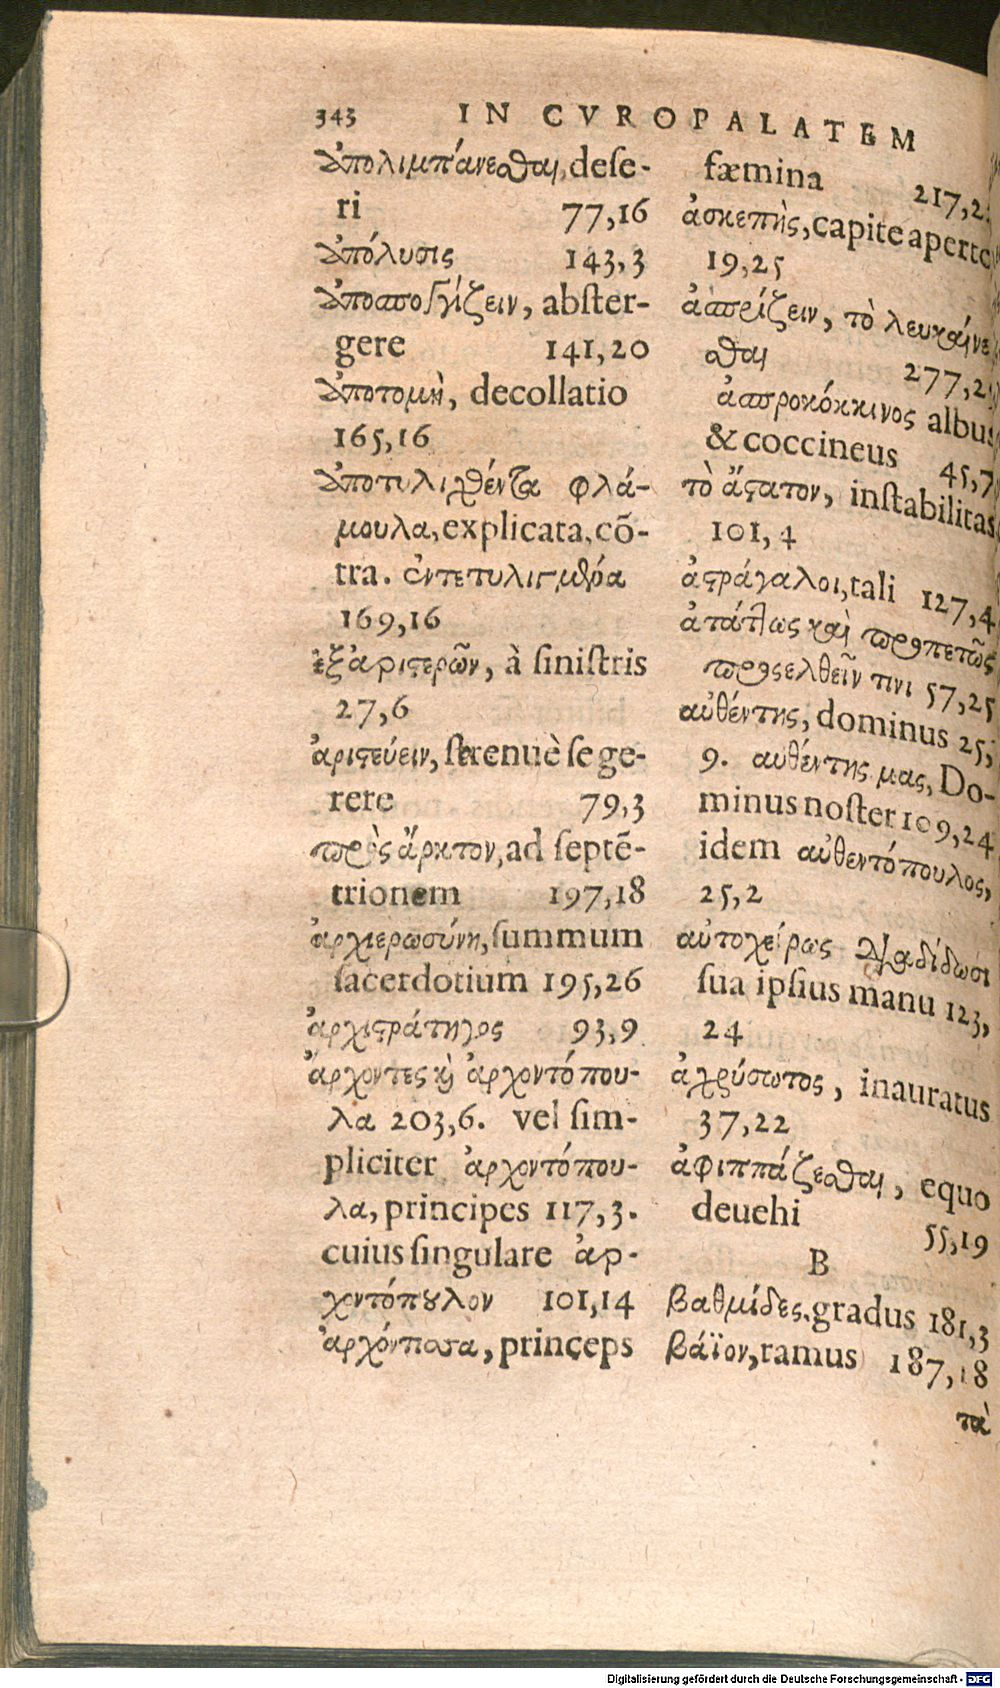 343 IN CVROPALATEM
ἀπολιμπάνεσθαι, dese-
ri 77,16
ἀπόλυσις 143,3
ἀποσπογγίζειν, abster-
gere 141,20
ἀποτομὴ, decollatio
165,16
ἀποτυλιχθέντα φλά-
μουλα, explicata, cō-
tra. ἐντετυλιγμένα
169,16
ἐξ ἀριστερῶν, à sinistris
27,6
ἀριστεύειν, strenuè se ge-
rere 79,3
πρὸς ἄρκτον, ad septē-
trionem 197,18
ἀρχιερωσύνη, summum
sacerdotium 195,26
ἀρχιστράτηγος 93,9
ἄρχοντες καὶ ἀρχοντόπου-
λα 203,6. vel sim-
pliciter ἀρχοντόπου-
λα, principes 117,3.
cuius singulare ἀρ-
χοντόπουλον 101,14
ἀρχόντισσα, princeps
fæmina 217,2
ἀσκεπὴς, capite aperto
19,25
ἀσπρίζειν, τὸ λευκαίνε
σθαι 277,2
ἀσπροκόκκινος albus
& coccineus 45,7
τὸ ἄστατον, instabilitas
101, 4
ἀστράγαλοι, tali 127,4
ἀτάκτως καὶ προπετῶς
προσελθεῖν τινι 57,25
αὐθέντης, dominus 25,
9. αυθέντης μας, Do-
minus noster 109,24
idem αὐθεντόπουλος,
25,2
αὐτοχείρως διαδίδωσι
sua ipsius manu 123,
24
ἀχρύσωτος, inauratus
37,22
ἀφιππάζεσθαι, equo
deuehi 55,19
B
βαθμίδες, gradus 181,3
βάϊον, ramus 187,18
τὰ
Digitalisierung gefördert durch die Deutsche Forschungsgemeinschaft - DFG